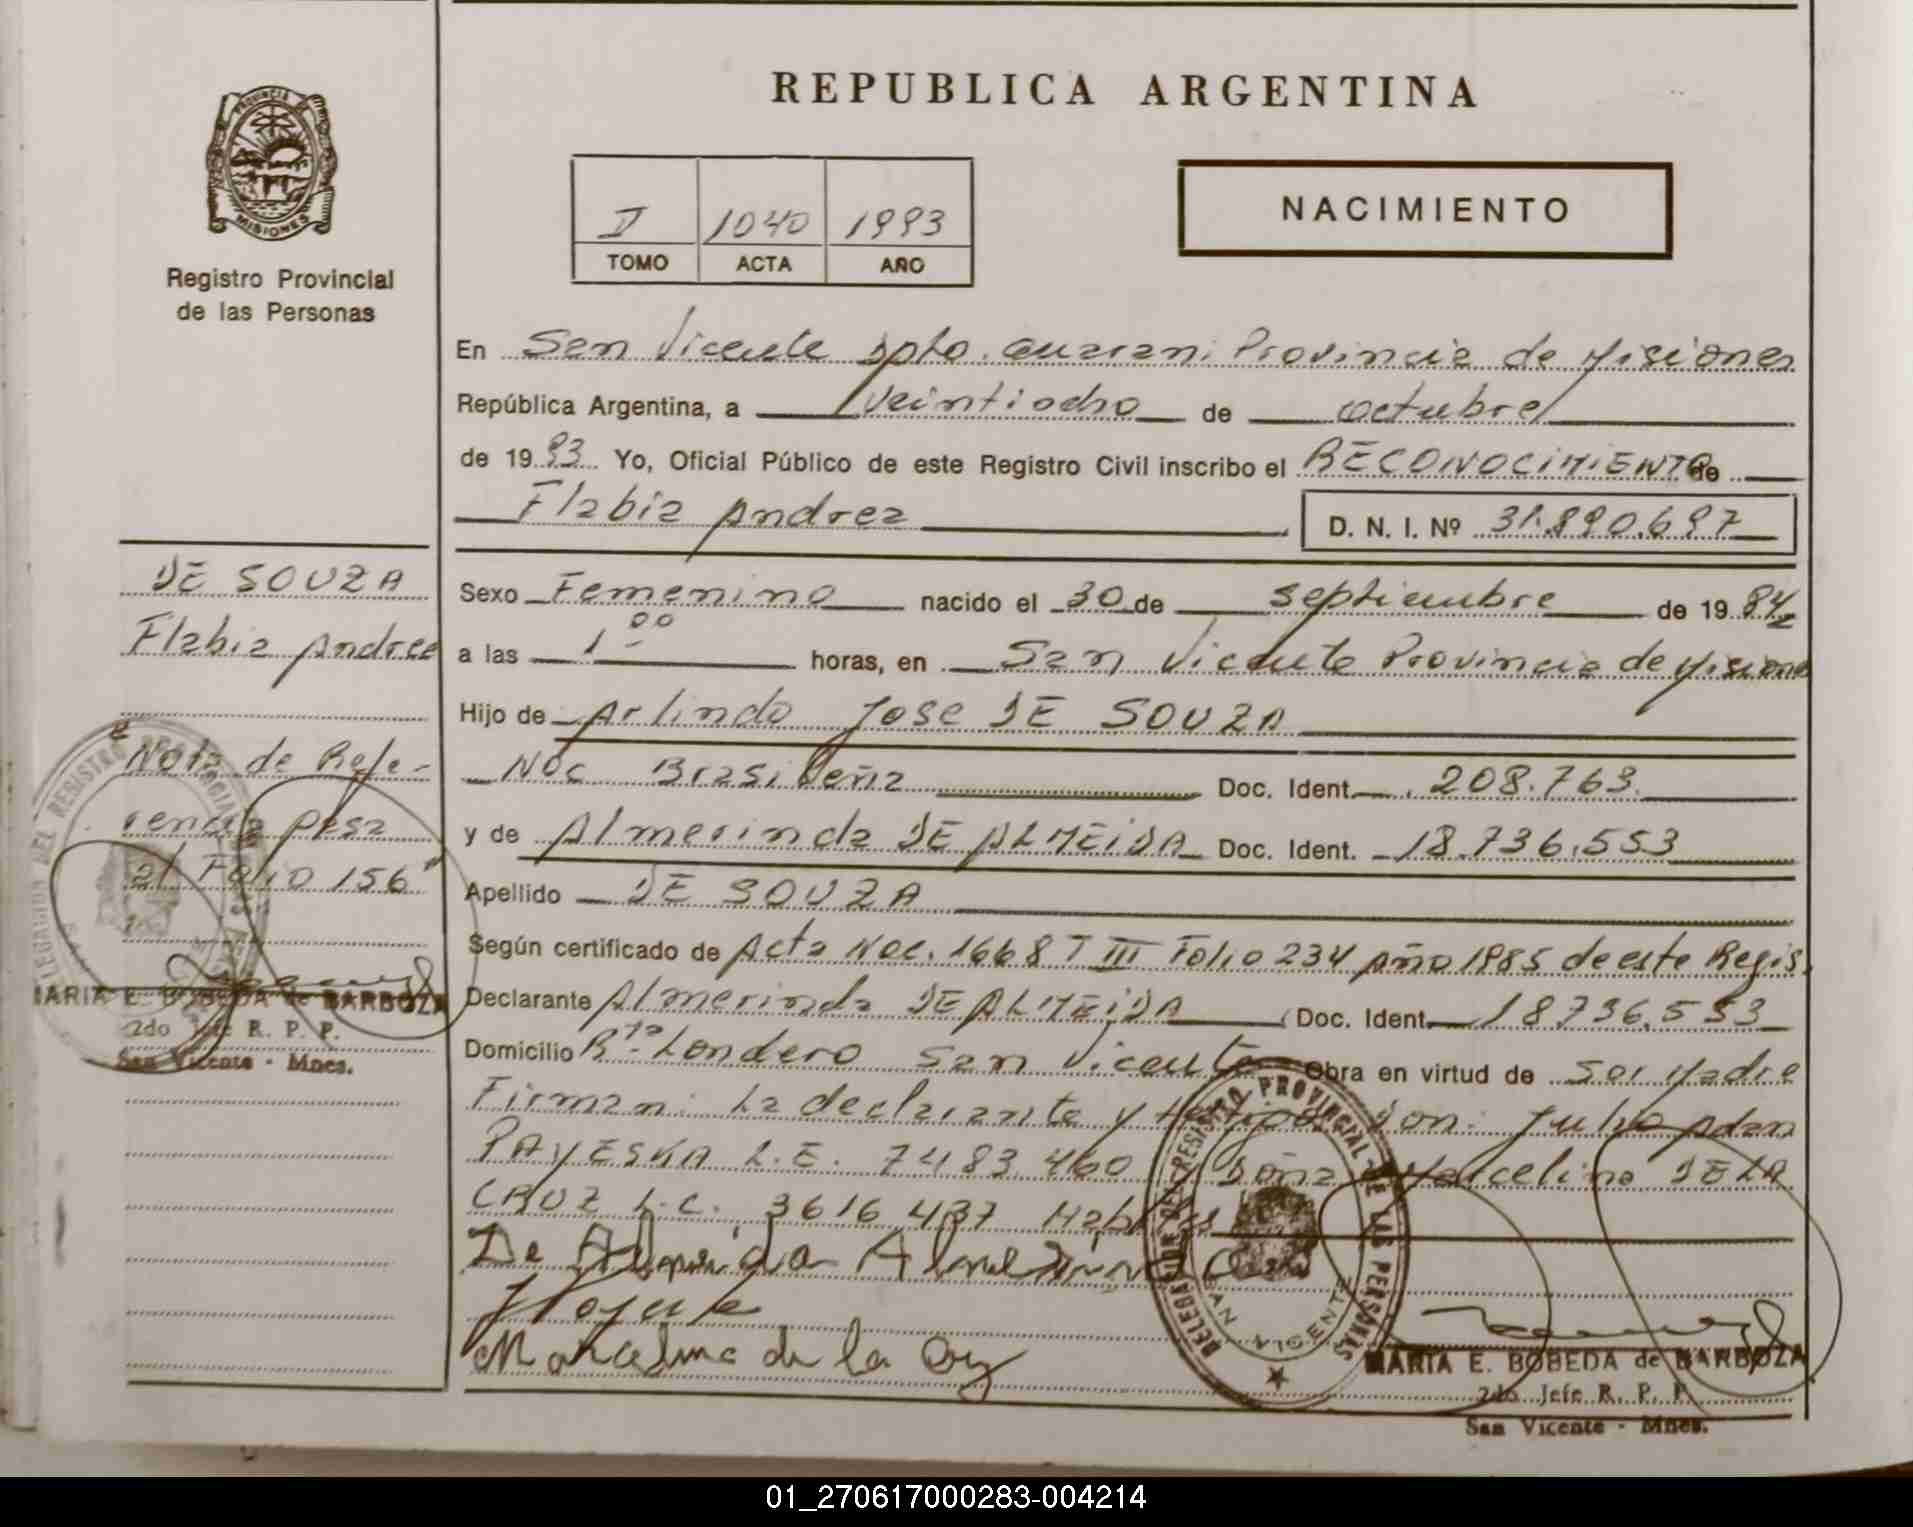 REPUBLICA ARGENTINA
PROVINCIA
MISIONES
Registro Provincial
de las Personas
1040 1993
TOMO ACTA AÑO
NACIMIENTO
En San Vicente Dpto. Guarani Provincia de Misiones
República Argentina, a veintiocho de octubre
de 1993 Yo, Oficial Público de este Registro Civil inscribo el RECONOCIMIENTO de
Flabia Andrea D. N. I. Nº 31.890.697
Sexo Femenino nacido el 30 de septiembre de 1984
a las 1 00 horas, en San Vicente Provincia de Misiones
Hijo de Arlindo Jose DE SOUZA
Nac Brasileña Doc. Ident. 208.763
y de Almerinda DE ALMEIDA Doc. Ident. 18.736.553
Apellido DE SOUZA
Según certificado de Acta Nac. 1668 T III Folio 234 Año 1985 de este Regis.
Declarante Almerinda DE ALMEIDA Doc. Ident. 18736.553
Domicilio Londero San Vicente Obra en virtud de Ser Madre
Firman: La declarante y testigos Don: Julio Adan
PAYESKA L.E. 7483.460 Doña Marcelina DE LA
CRUZ L.C. 3616437 Habiles
De Almeida Almerinda
Marcelina de la Cruz
DELEGACION DEL REGISTRO PROVINCIAL DE LAS PERSONAS
SAN VICENTE
MARIA E. BOBEDA de BARBOZA
2do Jefe R. P. P.
San Vicente - Mnes.
DE SOUZA
Flabia Andrea
Nota de Refe-
rencia pasa
al Folio 156"
MARIA E. BOBEDA de BARBOZA
2do Jefe R. P. P.
San Vicente - Mnes.
01_270617000283-004214